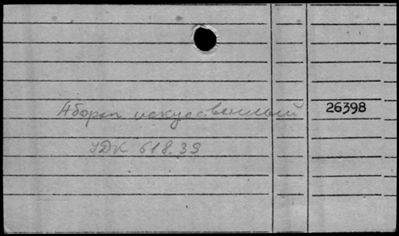 Аборт искусственный 26398
УДК 618.39